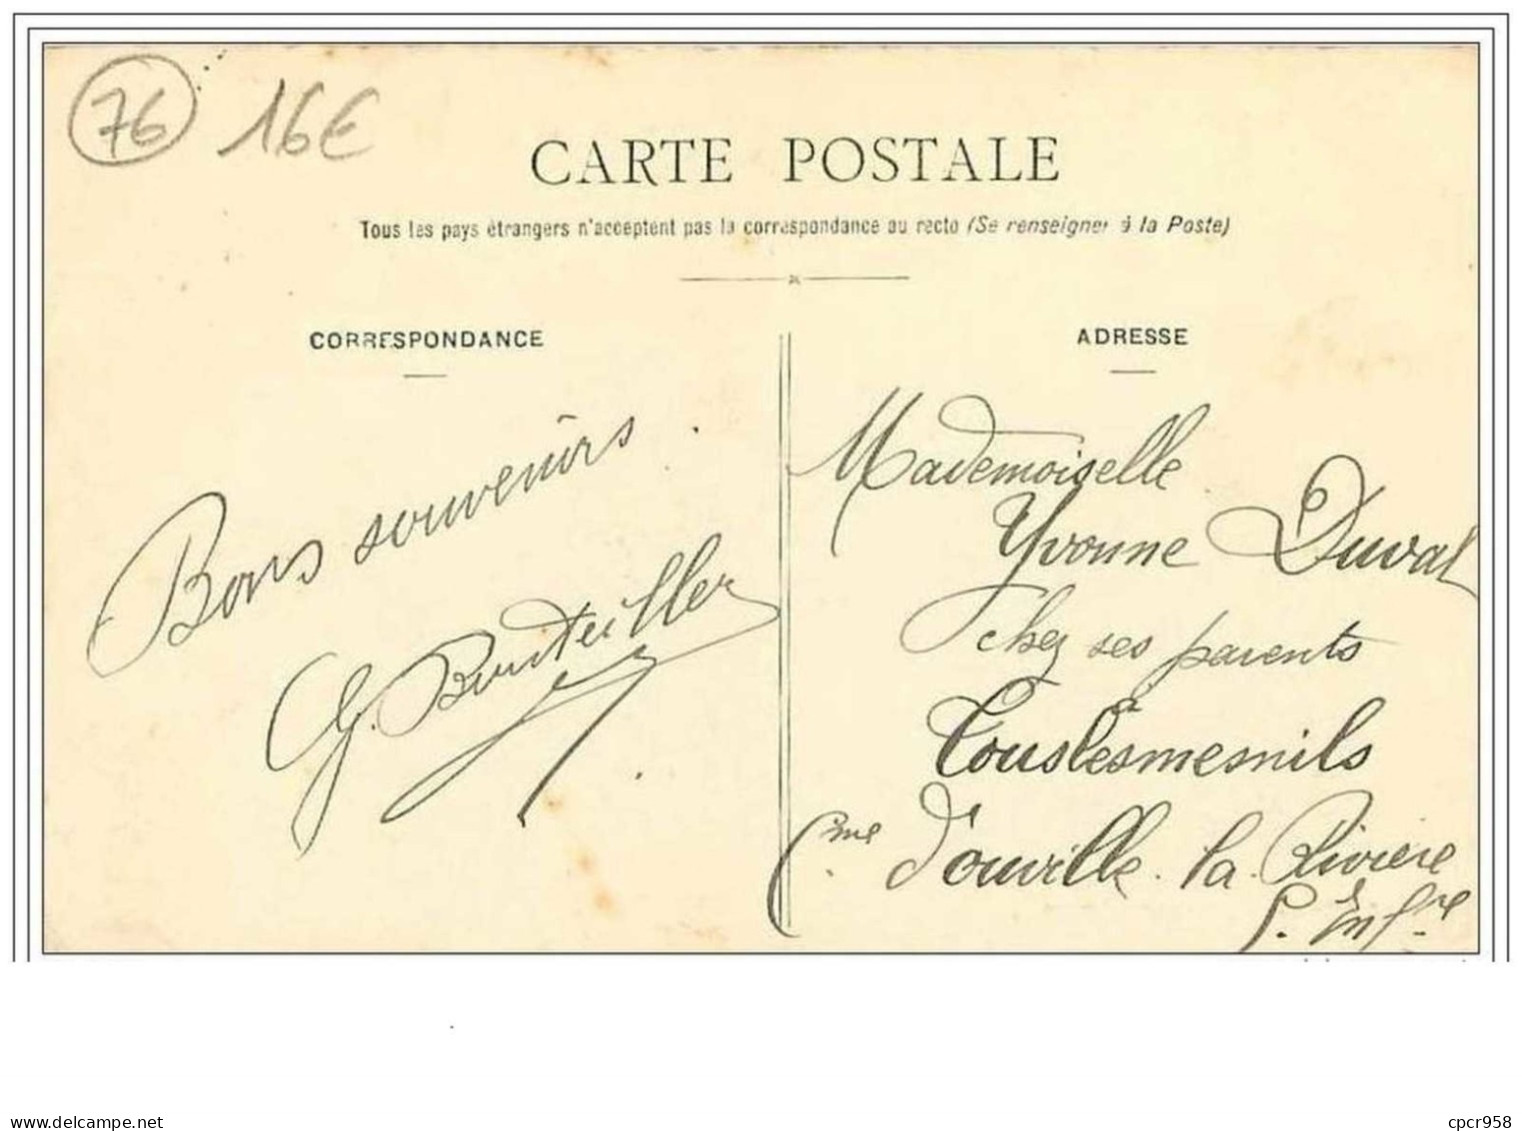 76 16€
CARTE POSTALE
Tous les pays étrangers n'acceptent pas la correspondance au recto (Se renseigner à la Poste)
CORRESPONDANCE
Bons souvenirs.
G. Bouteiller
ADRESSE
Mademoiselle
Yvonne Duval
chez ses parents
Touslesmesnils
Cme d'ouville. la. Rivière
S. Infre
delcampe.net
cpcr958